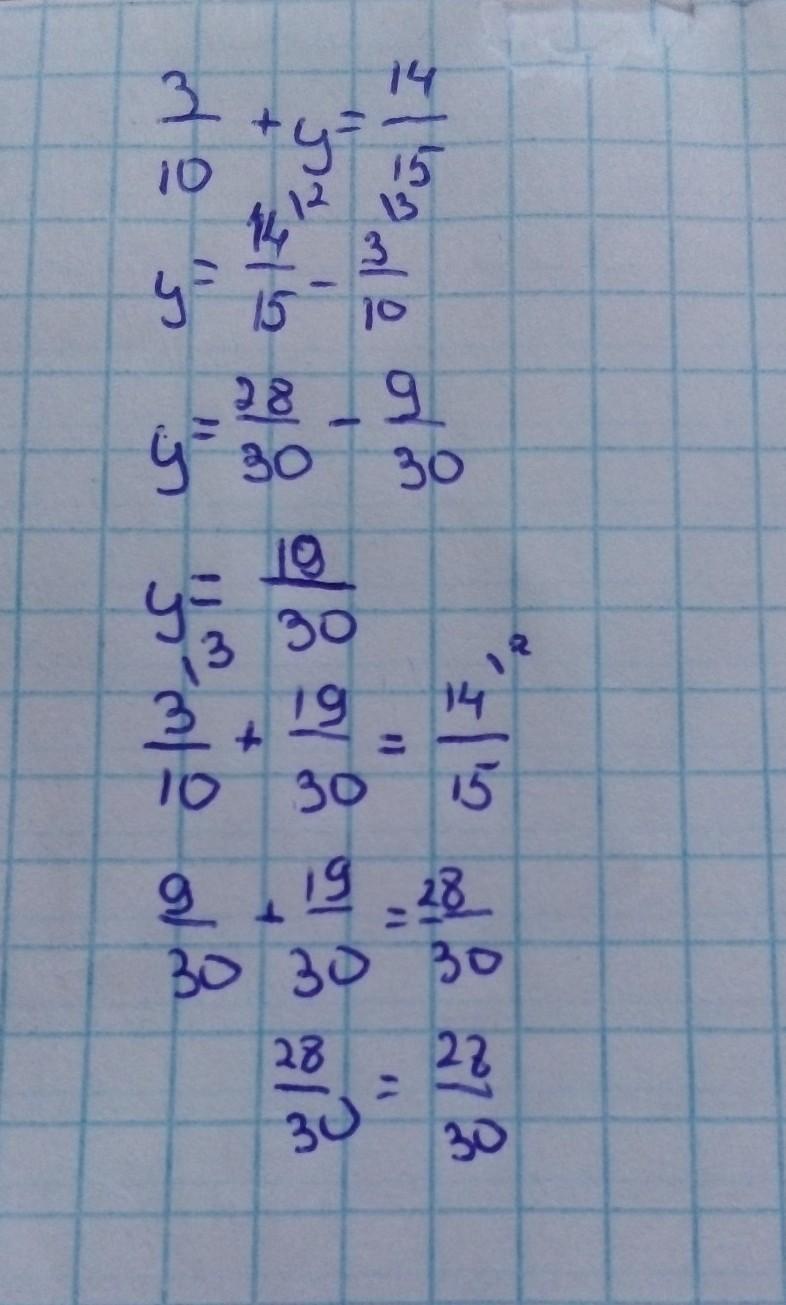 3/10 + y = 14/15
y = 14\2/15 - 3\3/10
y = 28/30 - 9/30
y = 19/30
3\3/10 + 19/30 = 14\2/15
9/30 + 19/30 = 28/30
28/30 = 28/30